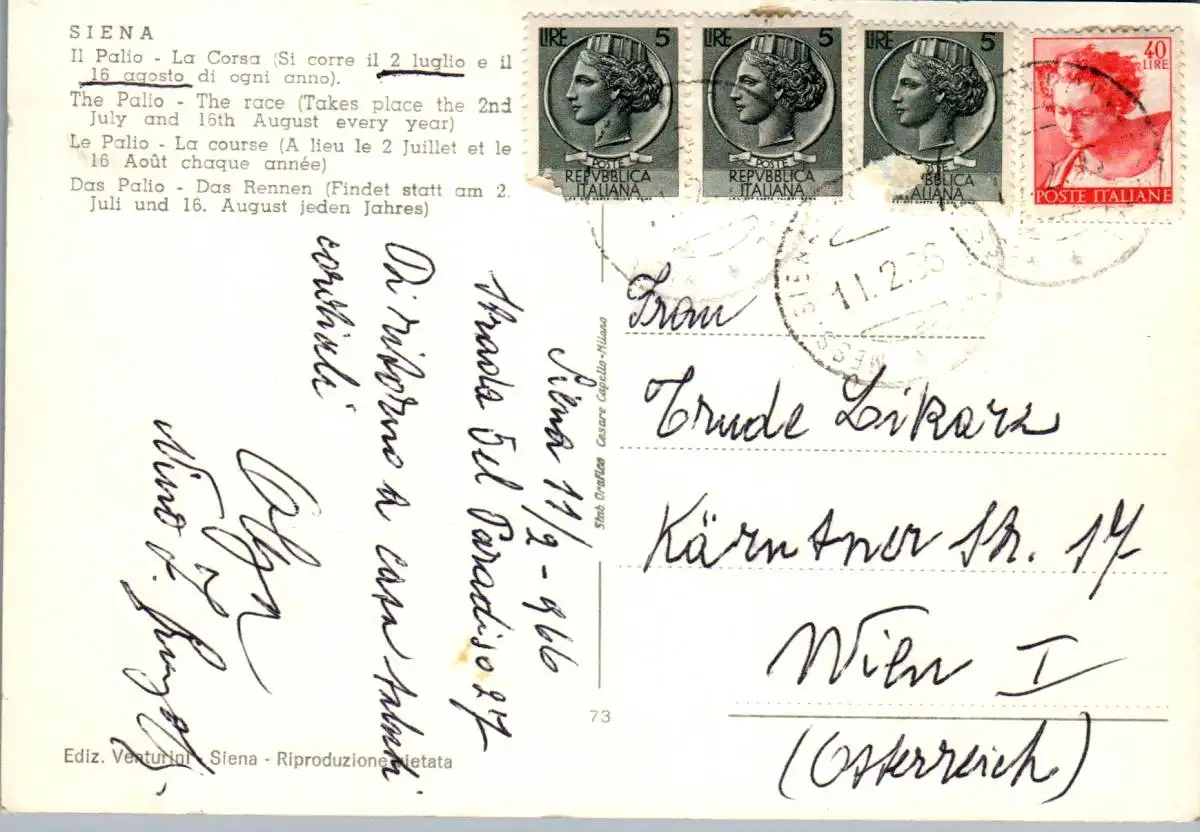 SIENA
Il Palio - La Corsa (Si corre il 2 luglio e il
16 agosto di ogni anno).
The Palio - The race (Takes place the 2nd
July and 16th August every year)
Le Palio - La course (A lieu le 2 Juillet et le
16 Août chaque année)
Das Palio - Das Rennen (Findet statt am 2.
Juli und 16. August jeden Jahres)
LIRE 5
POSTE
REPVBBLICA
ITALIANA
LIRE 5
POSTE
REPVBBLICA
ITALIANA
LIRE 5
BBLICA
ITALIANA
40
LIRE
POSTE ITALIANE
SIEN
11.2.66
MESS
Siena 11/2-966
Strada del Paradiso 27
Di ritorno a casa saluti
cordiali
Olga
Nino
Stab. Grafico Cesare Capello-Milano
Frau
Trude Likarz
Kärntner Str. 17
Wien I
(Österreich)
73
Ediz. Venturini - Siena - Riproduzione vietata